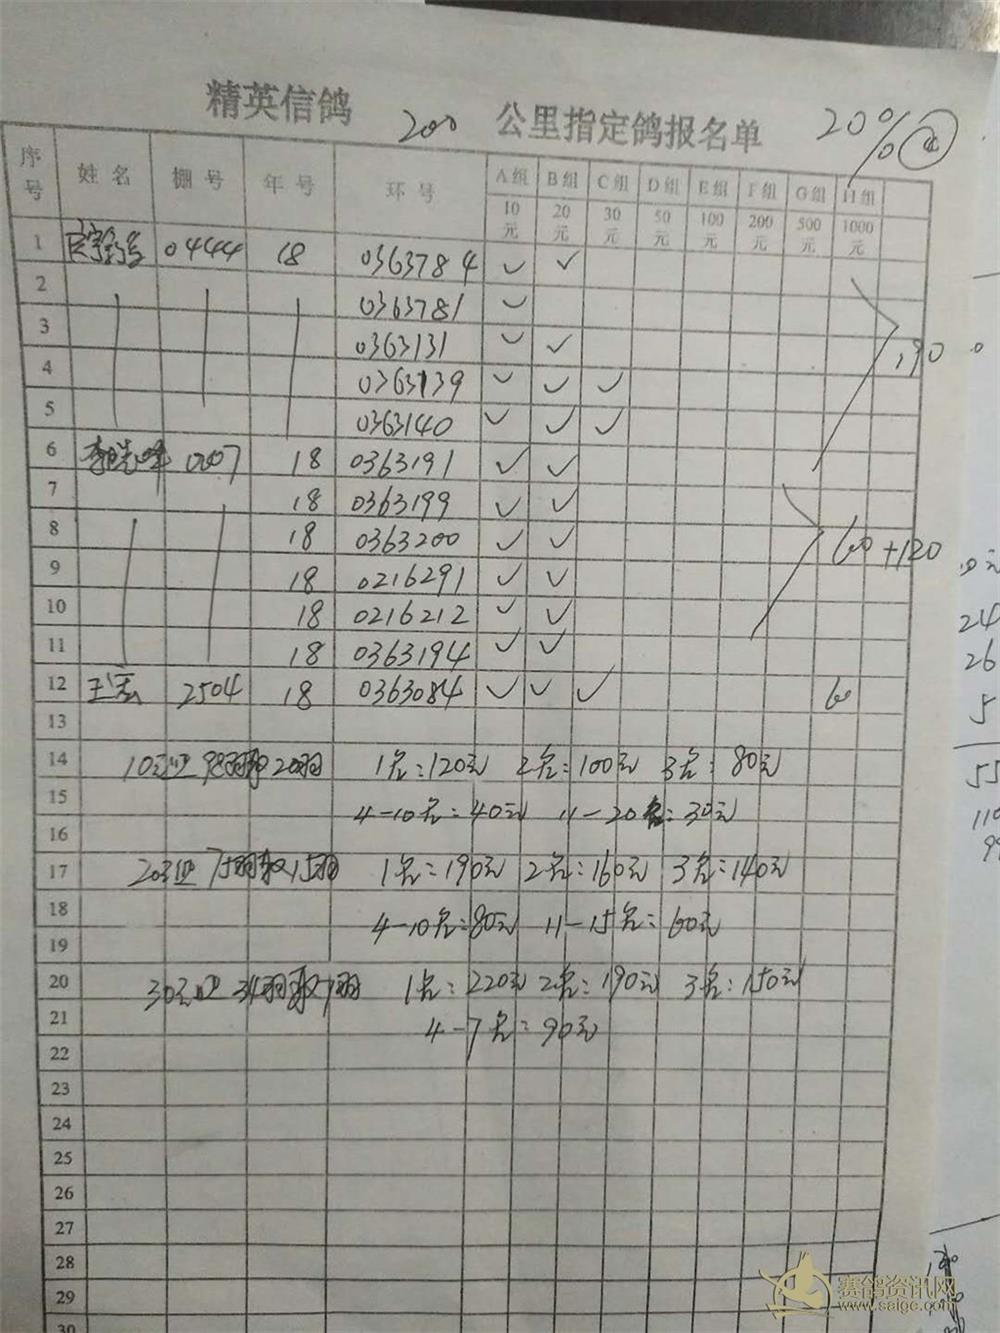 精英信鸽 200 公里指定鸽报名单 20%
④
序号 姓名 棚号 年号 环号 A组 B组 C组 D组 E组 F组 G组 H组
10元 20元 30元 50元 100元 200元 500元 1000元
1 04444 18 0363784 ✓ ✓
2 0363781 ✓
3 0363131 ✓ ✓
4 0363139 ✓ ✓ ✓
190
5 0363140 ✓ ✓ ✓
6 李晓峰 18 0363191 ✓ ✓
7 18 0363199 ✓ ✓
8 18 0363200 ✓ ✓
60+120
9 18 0216291 ✓ ✓
10 18 0216212 ✓ ✓
11 18 0363194 ✓ ✓
12 王宏 2504 18 0363084 ✓ ✓ ✓ 60
13
14 10元 98羽取20羽 1名:120元 2名:100元 3名:80元
15 4-10名:40元 11-20名:30元
16
17 20元 75羽取15羽 1名:190元 2名:160元 3名:140元
18 4-10名:80元 11-15名:60元
19
20 30元 34羽取7羽 1名:220元 2名:190元 3名:150元
21 4-7名:90元
22
23
24
25
26
27
28
29
30
24
26
5
55
110
99
赛鸽资讯网
www.saige.com